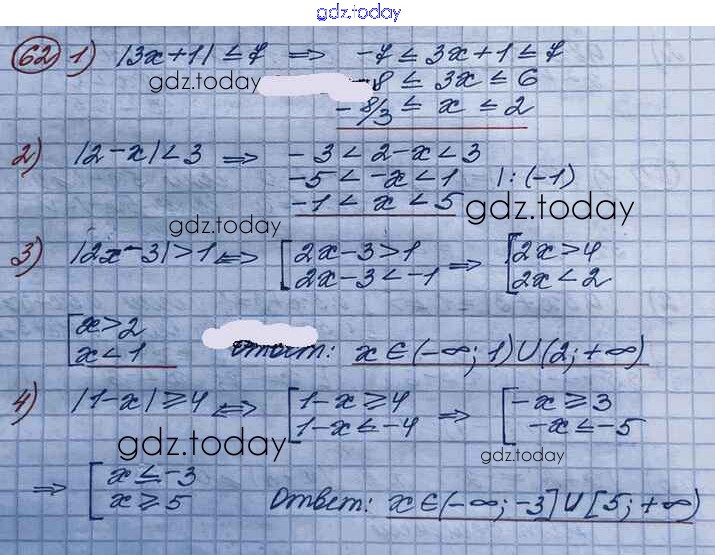 gdz.today
62 1) |3x+1| ≤ 7 ⇒ -7 ≤ 3x+1 ≤ 7
gdz.today 8 ≤ 3x ≤ 6
-8/3 ≤ x ≤ 2
2) |2-x| < 3 ⇒ -3 < 2-x < 3
-5 < -x < 1 |:(-1)
-1 < x < 5 gdz.today
gdz.today
3) |2x-3| > 1 ⇔ [2x-3 > 1 ⇒ [2x > 4
2x-3 < -1 2x < 2
[x > 2
x < 1 Ответ: x ∈ (-∞; 1) U (2; +∞)
4) |1-x| ≥ 4 ⇔ [1-x ≥ 4 ⇒ [-x ≥ 3
1-x ≤ -4 -x ≤ -5
gdz.today gdz.today
⇒ [x ≤ -3
x ≥ 5 Ответ: x ∈ (-∞; -3] U [5; +∞)